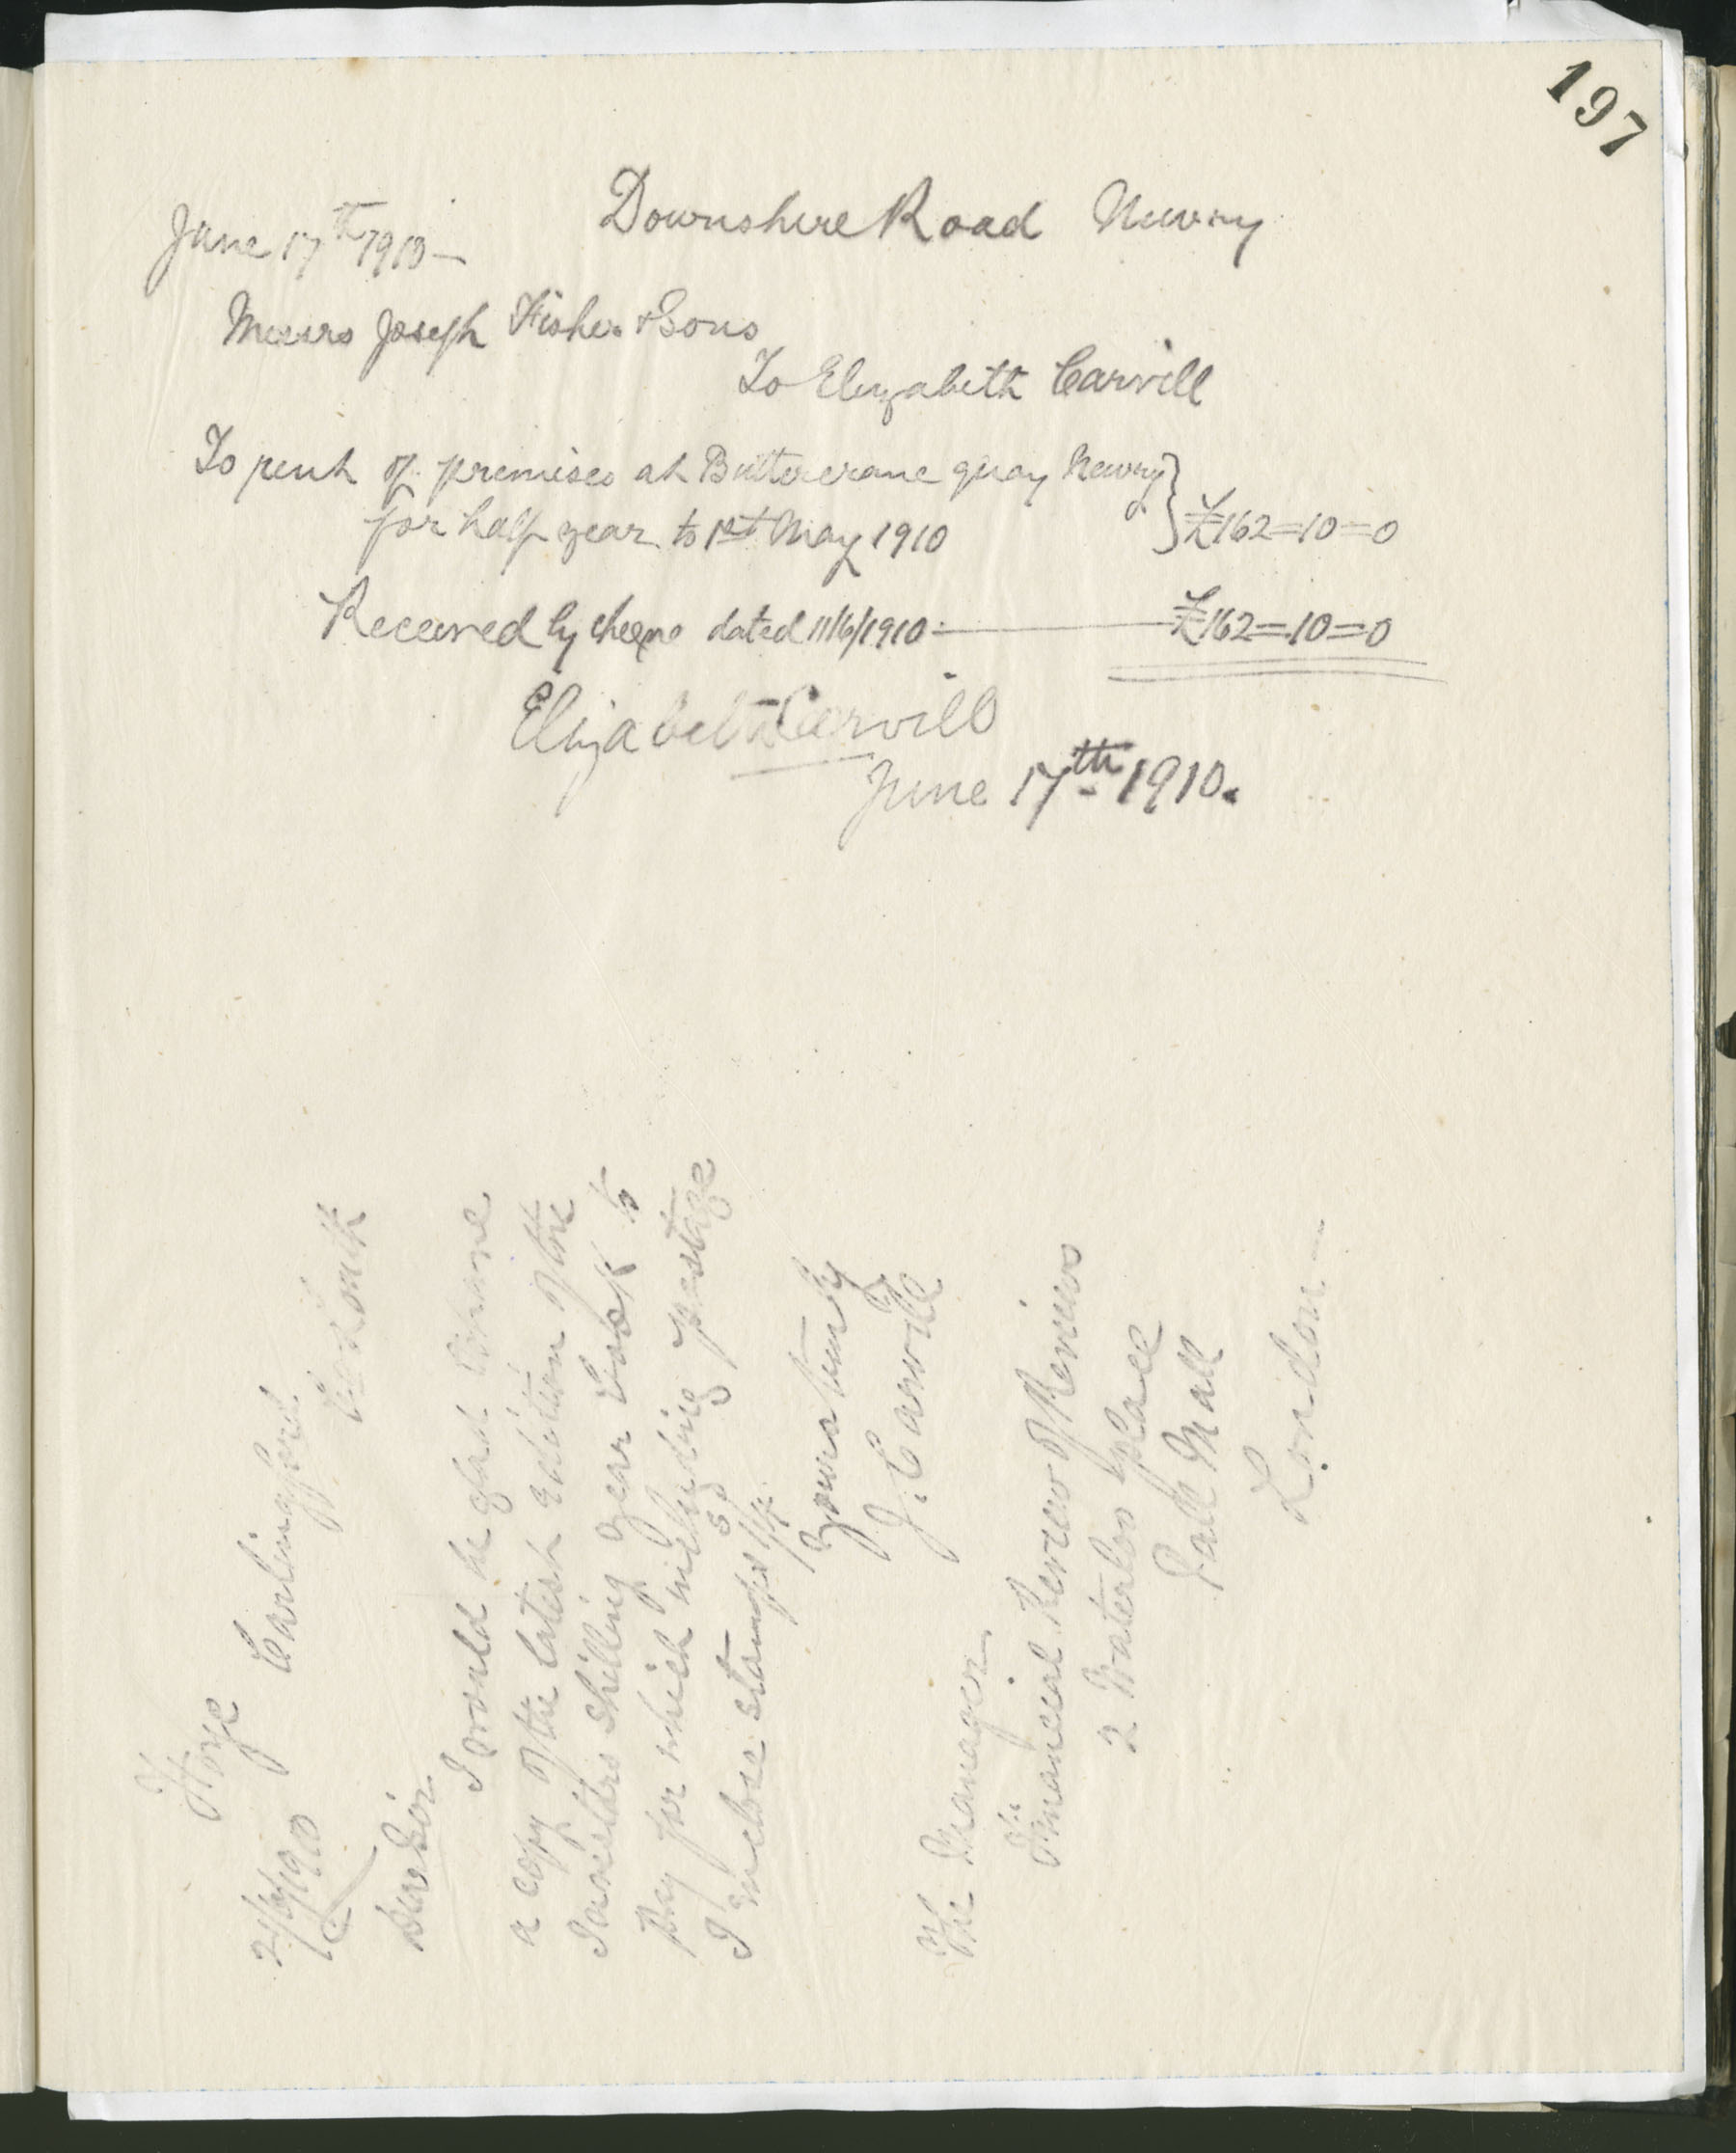 197
Downshire Road Newry
June 17th 1910 —
Messrs Joseph Fisher & Sons
To Elizabeth Carvill
To rent of premises at Buttercrane quay Newry
for half year to 1st May 1910 £162=10=0
Received by cheque dated 11/6/1910 — £162=10=0
Elizabeth Carvill
June 17th 1910.
Carlingford
Co Louth
21/6/1910
Dear Sir
I would be glad
a copy of the latest edition of the
Investors shilling year book to
Pay for which including postage
I enclose stamps
Yours truly
J. Carvill
The Manager
Financial Review of Reviews
2 Waterloo place
Pall Mall
London —